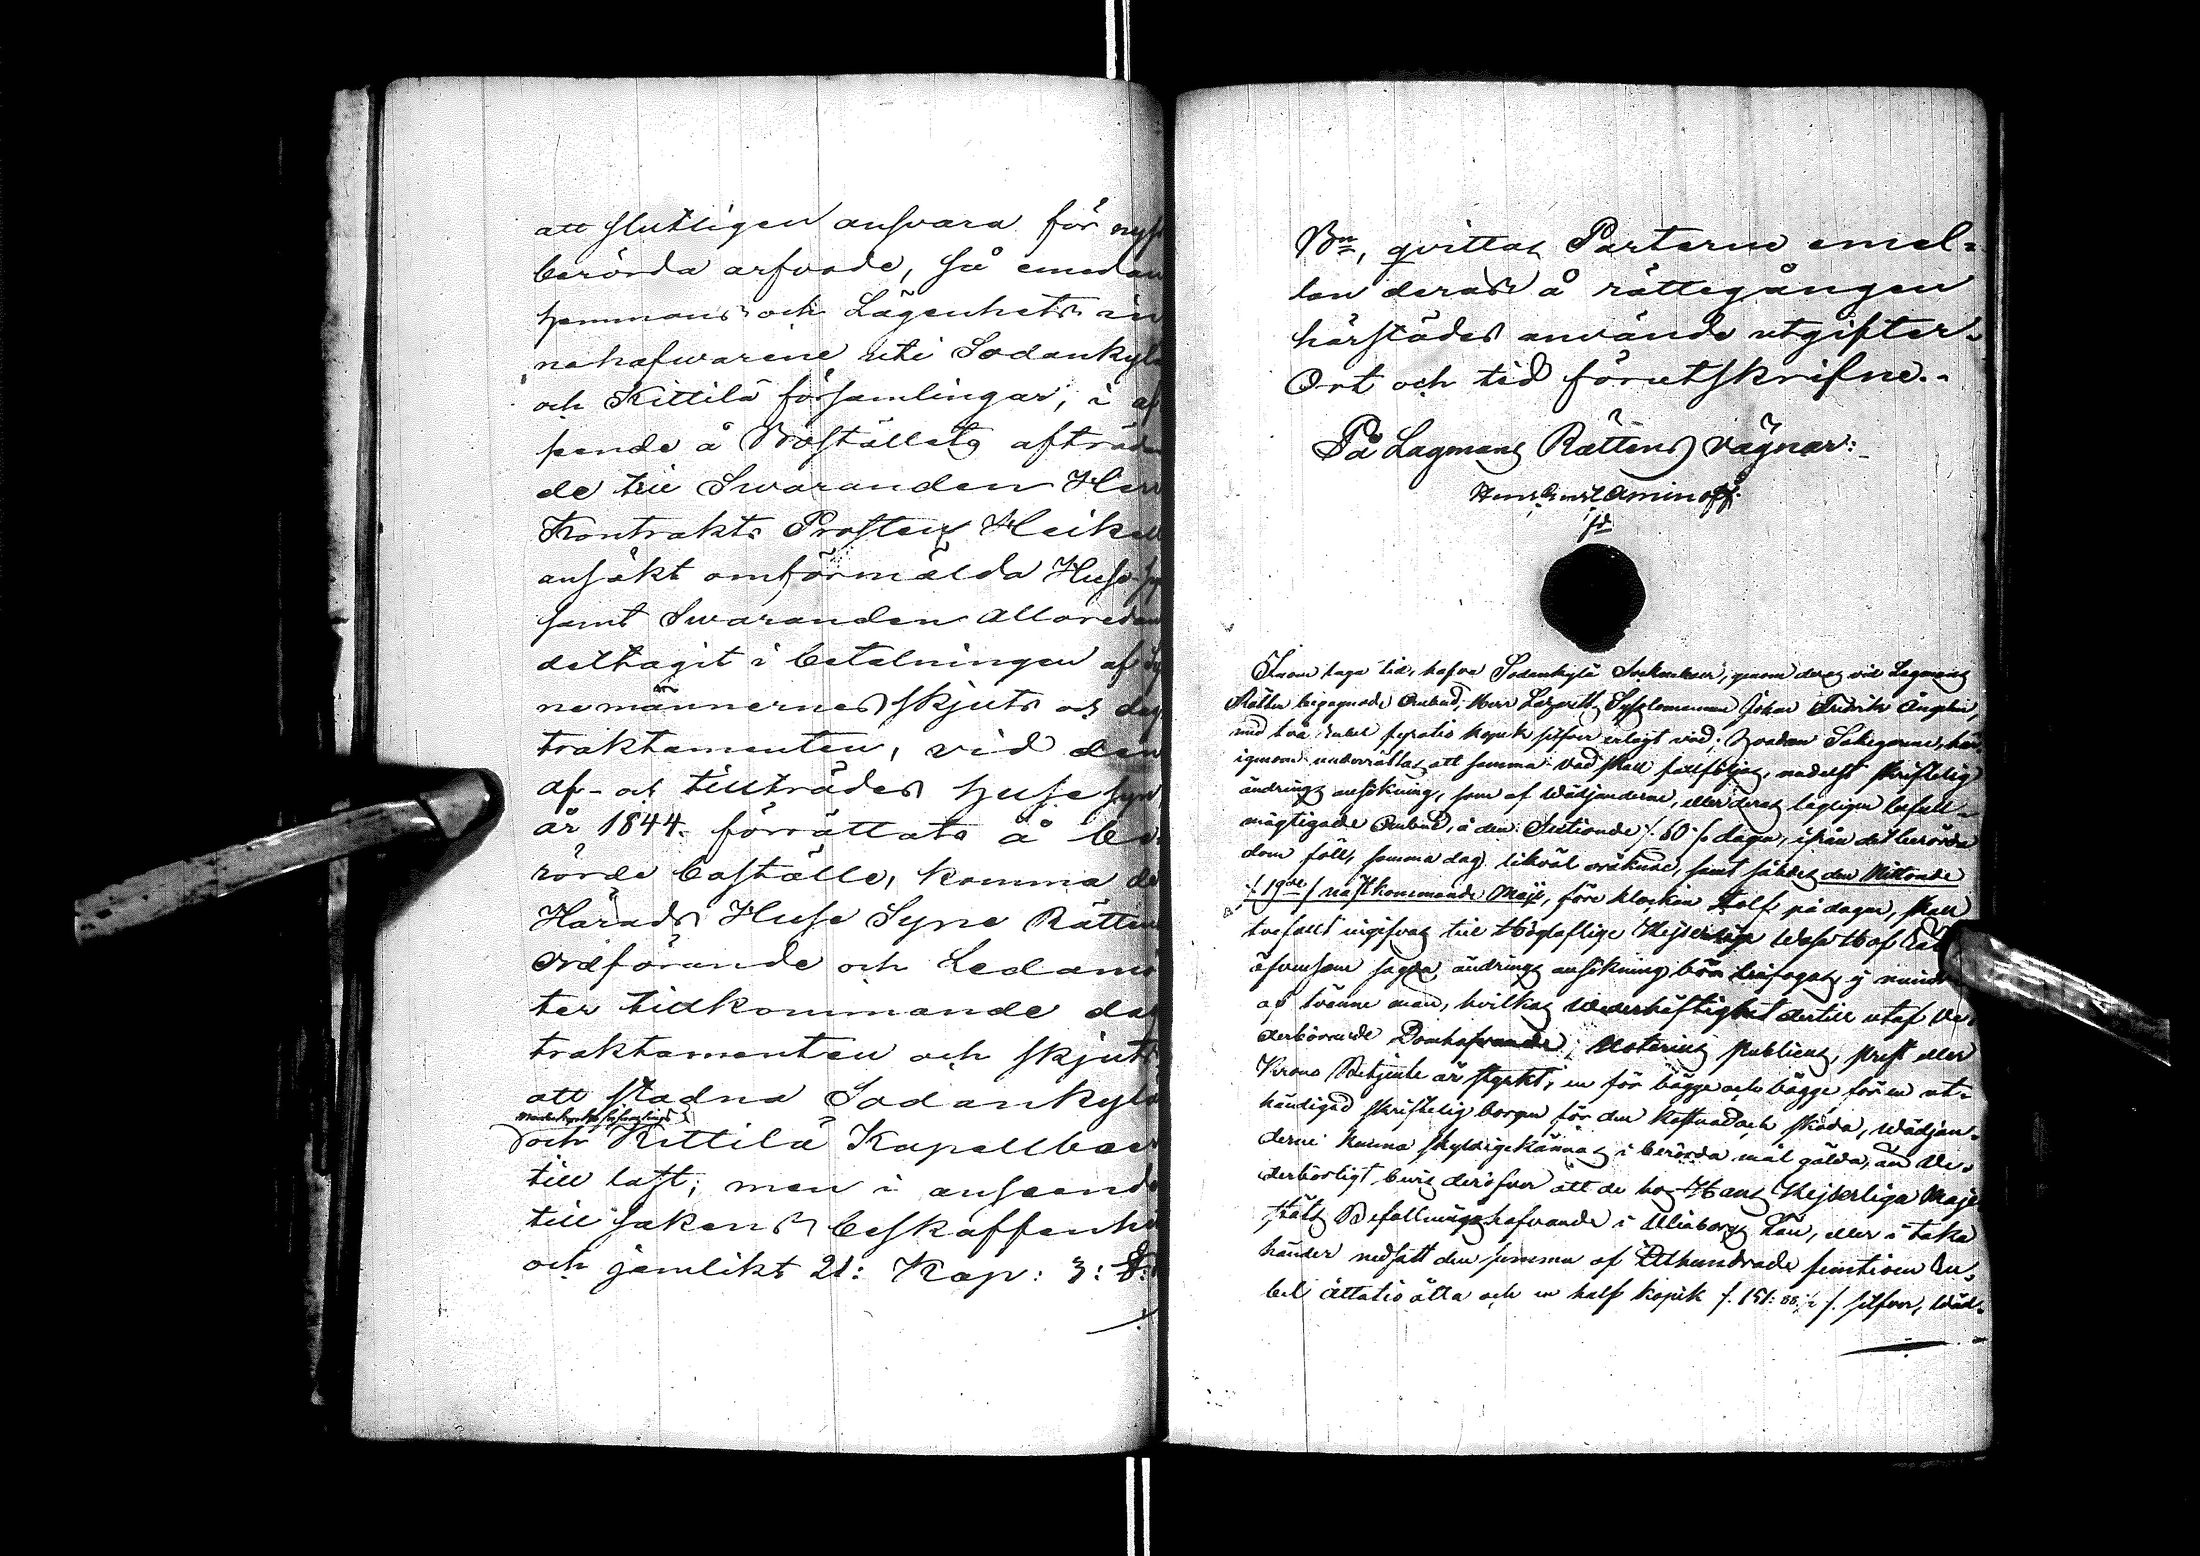 att slutligen ansvara för nyss
berörda arfvode, så emedan
hemmans och Lägenhets in
nehafwarene uti Sodankylä
och Kittilä församlingar, i af
seende å Boställets afträdan
de till Swaranden Herr
Kontrakts Prosten Heikel
ansökt omförmälda Husesyn
samt Swaranden Allaredan
deltagit i betalningen af Sy
nemännernes skjuts och dag
traktamenten, vid den
af- och tillträdes husesyn
år 1844. förrättats å be-
rörde boställe, komma de
Härads Huse Syne Rättens
Ordförande och Ledamö
ter tillkommande dag
traktamenten och skjuts
att stadna Sodankylä
Moderkyrko församlings
och Kittilä Kapellboer
till last; men i anseende
till sakens beskaffenhet
och jemlikt 21: Kap: 3: §:
Bn, qvittas Parterne emel-
lan deras å rättegången
härstädes använde utgifter.
Ort och tid förutskrifne.-
På Lagmans Rättens vägnar:
Aminoff.
Inom laga tid, hafva Sodankylä Sockneboer, genom deras vid Lagmans
Rätten begagnade Ombud, Herr Lazaretts Sysslomannen Johan Fredrik Ångelin,
med två rubel sextio kopek silfver erlagt vad; hvadan Sakegarne, här-
igenom underrättas att samma vad skall fullföljas, medelst skriftelig
ändrings ansökning, som af Wädjanderne, eller deras lagligen befull-
mägtigade Ombud, å den Sextionde /. 60 /. dagen, ifrån det berörde
dom föll, samma dag likväl oräknad, samt således den Nittonde
/. 19de / nästkommande Maji, före klockan Tolf på dagen, skall
tvefallt ingifvas till Högloflige Kejserliga Wasa Hof Rätt
äfvensom sagda ändrings ansökning bör bifogas, ej mindre
af tvänne män, hvilkas Wederhäftighet dertill utaf ve-
derbörande Domhafvande, Notarius publicus, prest eller
Krono Betjente är styrkt, en för bägge och bägge för en ut-
händigad skriftelig borgen för den kostnad och skada, Wädjan-
derne kunna skyldige kännas i berörda mål gälda, än We-
derbörligt bevis deröfver att de hos Hans Kejserliga Maje
ställs Befallningshafvande i Uleåborgs Län, eller i taka
händer nedsatt den summa af Etthundrade femtioen Ru-
bel åttatio åtta och en half kopek /. 151: 88 1/2 /. silfver, Wäd-